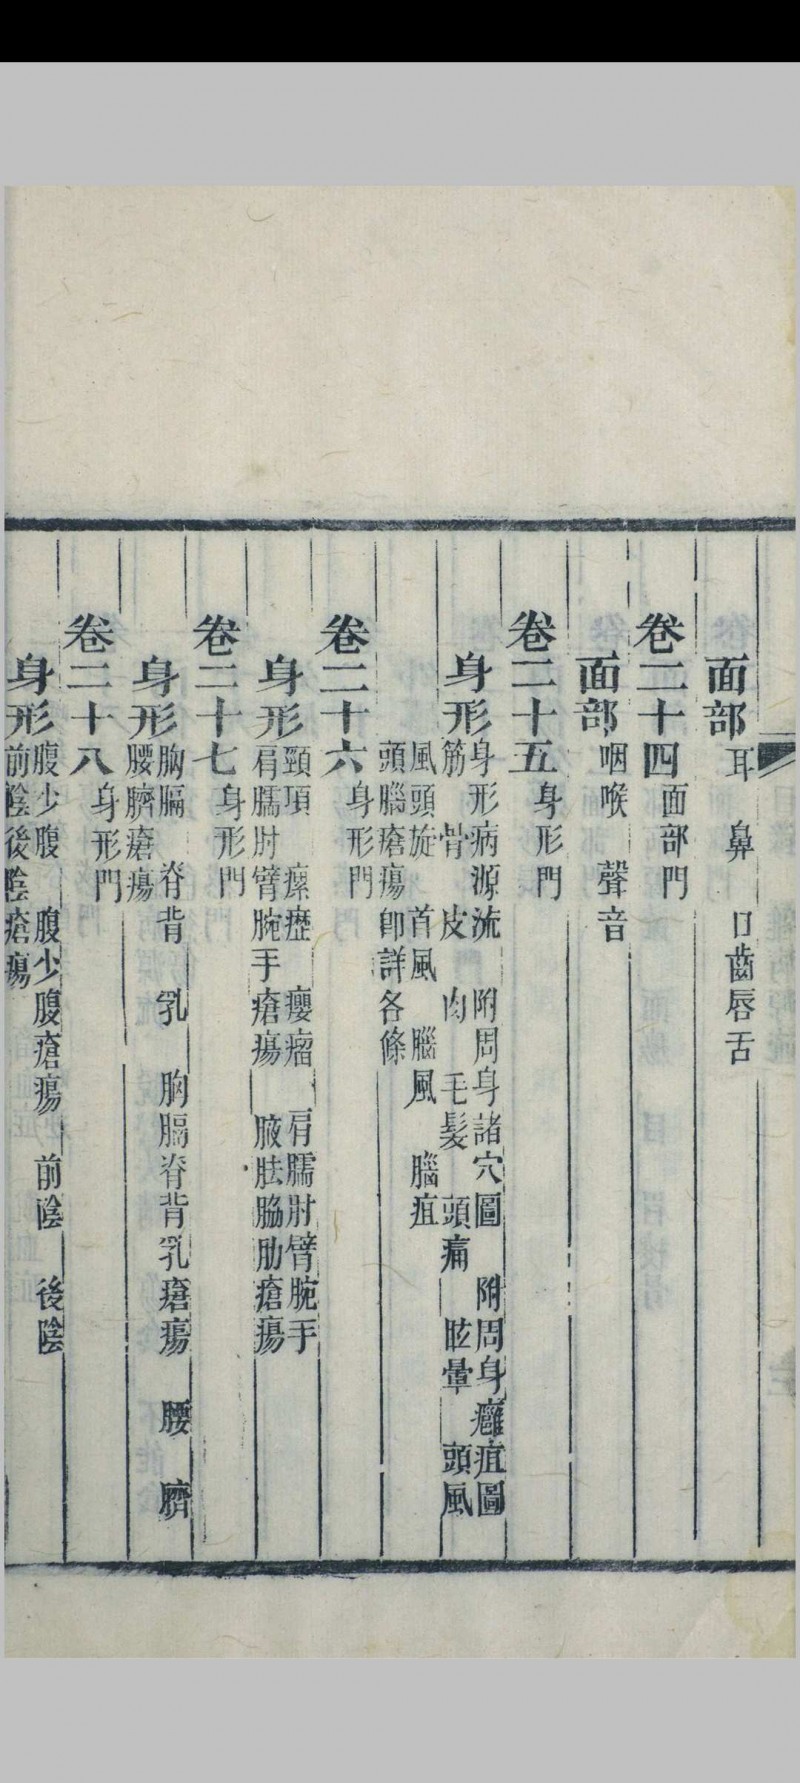 面部 耳 鼻 口齒唇舌
卷二十四 面部門
面部 咽喉 聲音
卷二十五 身形門
身形 身形病源流 附周身諸穴圖 附周身癰疽圖
筋 骨 皮 肉 毛髮 頭痛 眩暈 頭風
風頭旋 首風 腦風 腦疽
頭腦瘡瘍卽詳各條
卷二十六 身形門
身形 頸項 瘰癧 癭瘤 肩臑肘臂腕手
肩臑肘臂腕手瘡瘍 腋胠脇肋瘡瘍
卷二十七 身形門
身形 胸膈 脊背 乳 胸膈脊背乳瘡瘍 腰 臍
腰臍瘡瘍
卷二十八 身形門
身形 腹少腹 腹少腹瘡瘍 前陰 後陰
前陰後陰瘡瘍